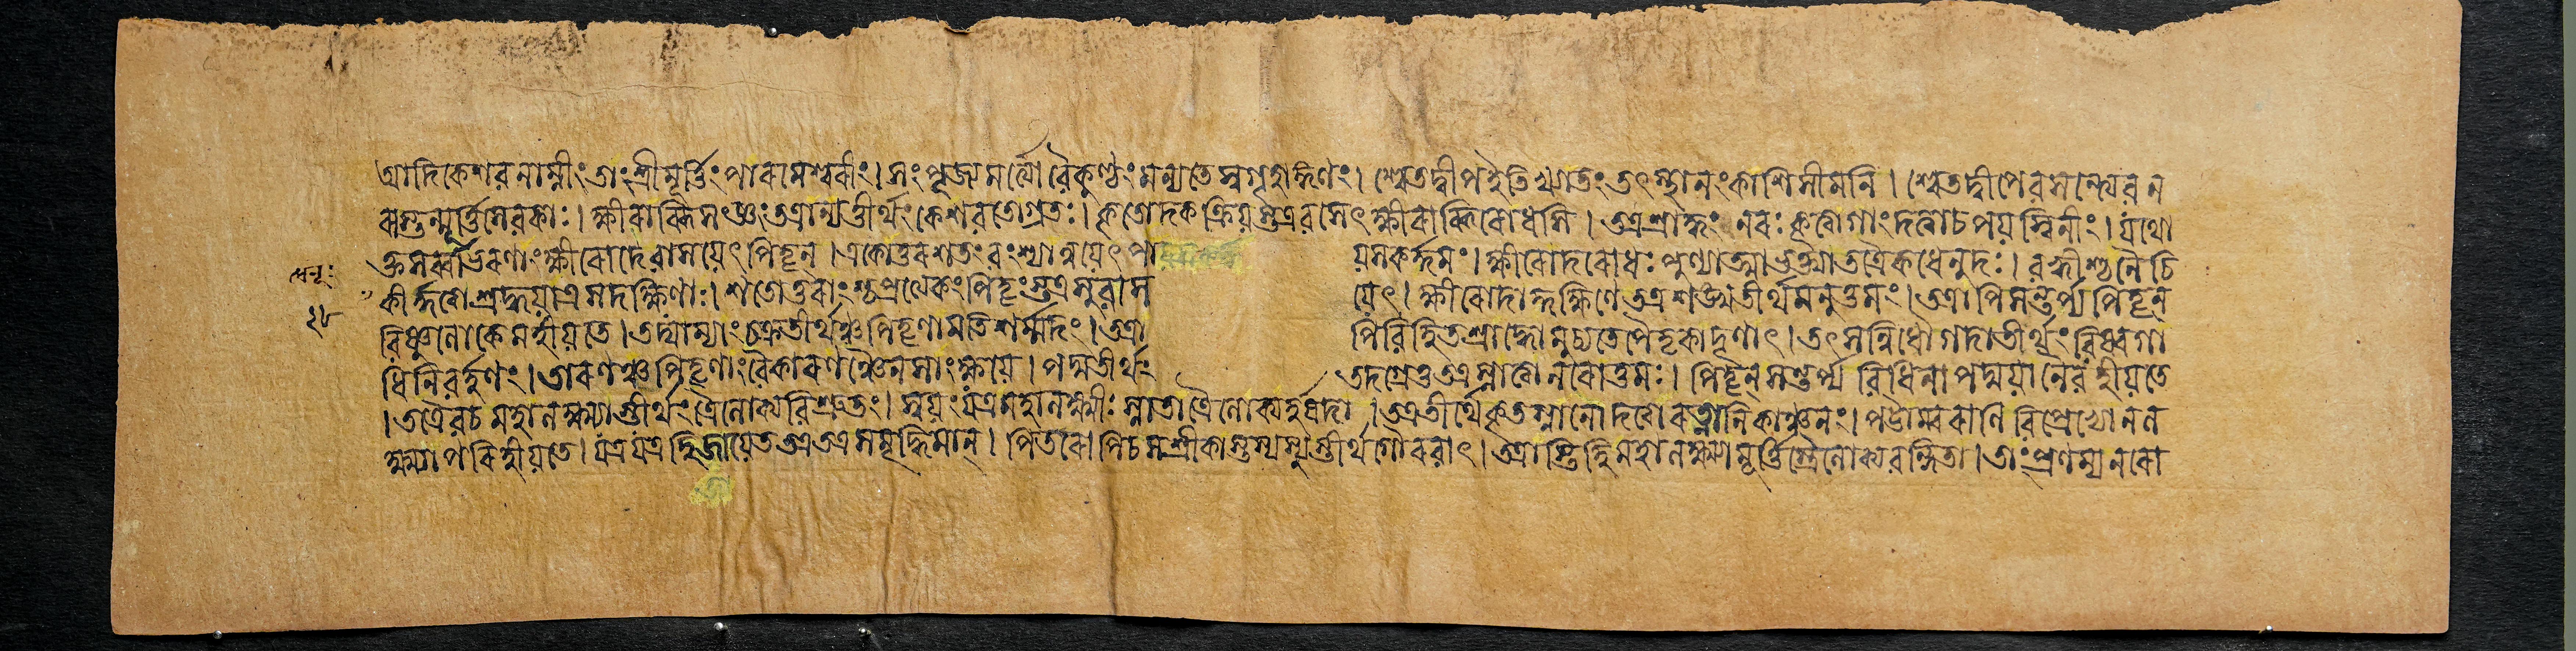 আদিকেশবনাম্নীং তাং শ্রীমূর্ত্তিং পারমেশ্বরীং। সংপূজ্য মর্ত্ত্যো বৈকুণ্ঠং মন্যতে স্বগৃহাঙ্গণং। শ্বেতদ্বীপ ইতি খ্যাতং তৎস্থানং কাশিসীমনি। শ্বেতদ্বীপে বসন্ত্যেব ন
রাস্তন্মূর্ত্তিসেবকাঃ। ক্ষীরাব্ধিসংজ্ঞং তত্রান্যত্তীর্থং কেশবতোগ্রতঃ। কৃতোদকক্রিয়স্তত্র বসেৎ ক্ষীরাব্ধিরোধসি। তত্র শ্রাদ্ধং নরঃ কৃত্বা গাং দত্বা চ পয়স্বিনীং। যথো
ক্তসর্ব্বাভরণাং ক্ষীরোদে বাসয়েৎ পিতৄন্। একোত্তরশতং বংশ্যান্নয়েৎ পায় য়সকর্দ্দমং। ক্ষীরোদরোধঃ পুণ্যাত্মা ভক্ত্যা তত্রৈকধেনুদঃ। বহ্বীশ্চ নৈচি
কীর্দ্দত্বা শ্রদ্ধয়াত্র সদক্ষিণাঃ। শতোত্তরাংশ্চ প্রত্যেকং পিতৄংস্তত্র সুবাস য়েৎ। ক্ষীরোদাদ্দক্ষিণে তত্র শঙ্খতীর্থমনুত্তমং। তত্রাপি সন্তর্প্য পিতৄন্
বিষ্ণুলোকে মহীয়তে। তদ্যাম্যাং চক্রতীর্থঞ্চ পিতৄণামতিশর্ম্মদং। তত্রা পি বিহিতশ্রাদ্ধো মুচ্যতে পৈতৃকাদৃণাৎ। তৎসন্নিধৌ গদাতীর্থং বিষ্বগা
ধিনিবর্হণং। তারণঞ্চ পিতৄণাং বৈ কারণঞ্চৈনসাং ক্ষয়ে। পদ্মতীর্থং তদগ্রে তু তত্র স্নাত্বা নরোত্তমঃ। পিতৄন্ সন্তর্প্য বিধিনা পদ্ময়া নৈব হীয়তে
। তত্রৈব চ মহালক্ষ্ম্যাস্তীর্থং ত্রৈলোক্যবিশ্রুতং। স্বয়ং যত্র মহালক্ষ্মীঃ স্নাতা ত্রৈলোক্যহর্ষদা। তত্র তীর্থে কৃতস্নানো দত্বা রত্নানি কাঞ্চনং। পট্টাম্বরাণি বিপ্রেভ্যো ন ল
ক্ষ্ম্যা পরিহীয়তে। যত্র যত্র হি জায়েত তত্র তত্র সমৃদ্ধিমান্। পিতরোপি চ সশ্রীকাস্তস্য স্যুস্তীর্থগৌরবাৎ। তত্রাস্তি হি মহালক্ষ্ম্যা মূর্ত্তিস্ত্রৈলোক্যবন্দিতা। তাং প্রণম্য নরো
২৮